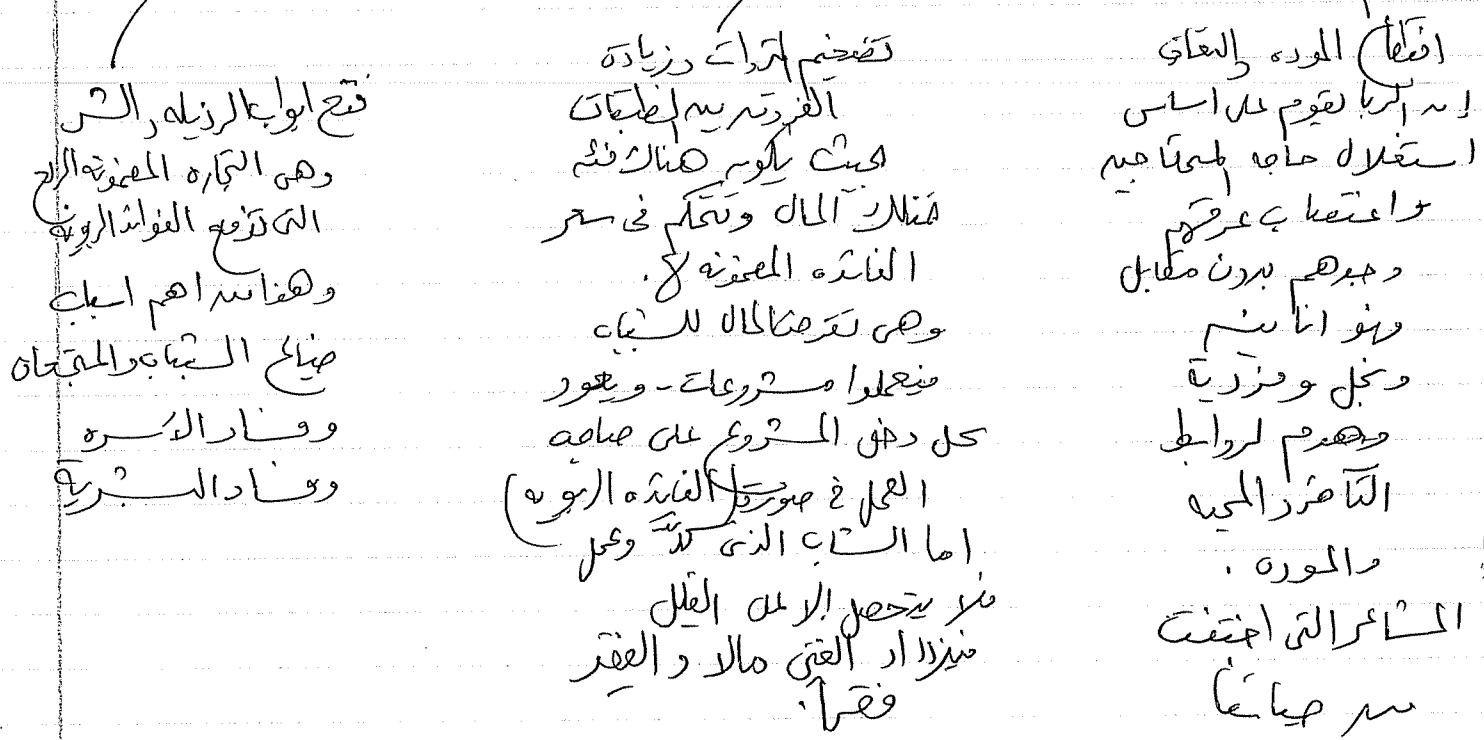 انقطاع الموده والتعاون
إن الربا يقوم على اساس
استغلال حاجه المحتاجين
واغتصاب عرقهم
وجهدهم بدون مقابل
فهو انانيه
وبخل وفردية
وهدم لروابط
التآخى والمحبه
والموده .
المشاعر التى اختفت
من حياتنا
تضخيم الثروات وزيادة
الفروق بين الطبقات
بحيث يكون هناك فئه
تمتلك المال وتتحكم فى سعر
الفائده المضمونه لها .
وهى تقرض المال للشباب
فيعملوا مشروعات - ويعود
كل دخل المشروع على صاحبه
العمل فى صورة (الفائده الربويه)
اما الشاب الذى كدّ وعمل
فلا يتحصل إلا على القليل
فيزداد الغنى مالا والفقير
فقراً .
فتح ابواب الرذيله والشر
وهى التجاره المضمونه الربح
التى تدفع الفوائد الربويه
وهذا من اهم اسباب
ضياع الشباب والمجتمعات
وفساد الأسره
وفساد البشرية